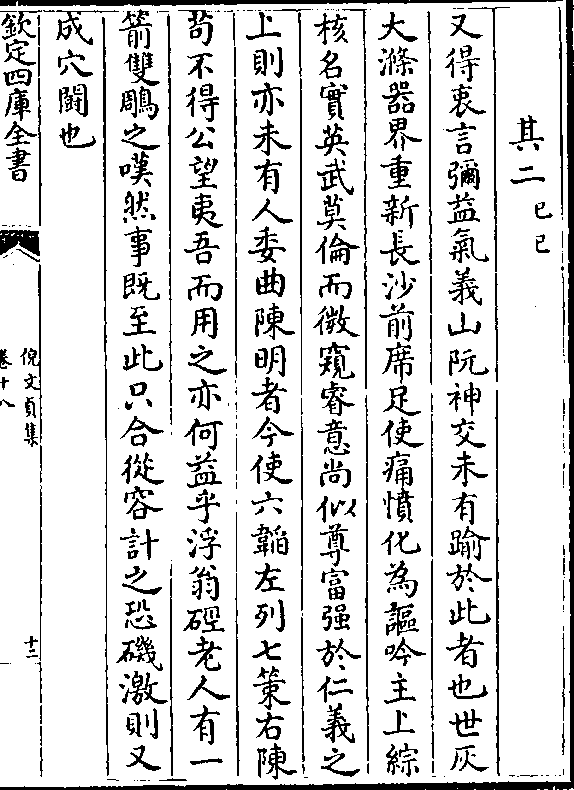 其二己巳
又得衷言彌益氣義山阮神交未有踰於此者也世灰
大滌器界重新長沙前席足使痛憤化為謳吟主上綜
核名實英武莫倫而微窺睿意尚似尊富强於仁義之
上則亦未有人委曲陳明者今使六韜左列七策右陳
苟不得公望夷吾而用之亦何益乎浮翁硜老人有一
箭雙鵰之嘆然事既至此只合從容計之恐磯激則又
成穴鬭也
欽定四庫全書
倪文貞集
卷十八
十二